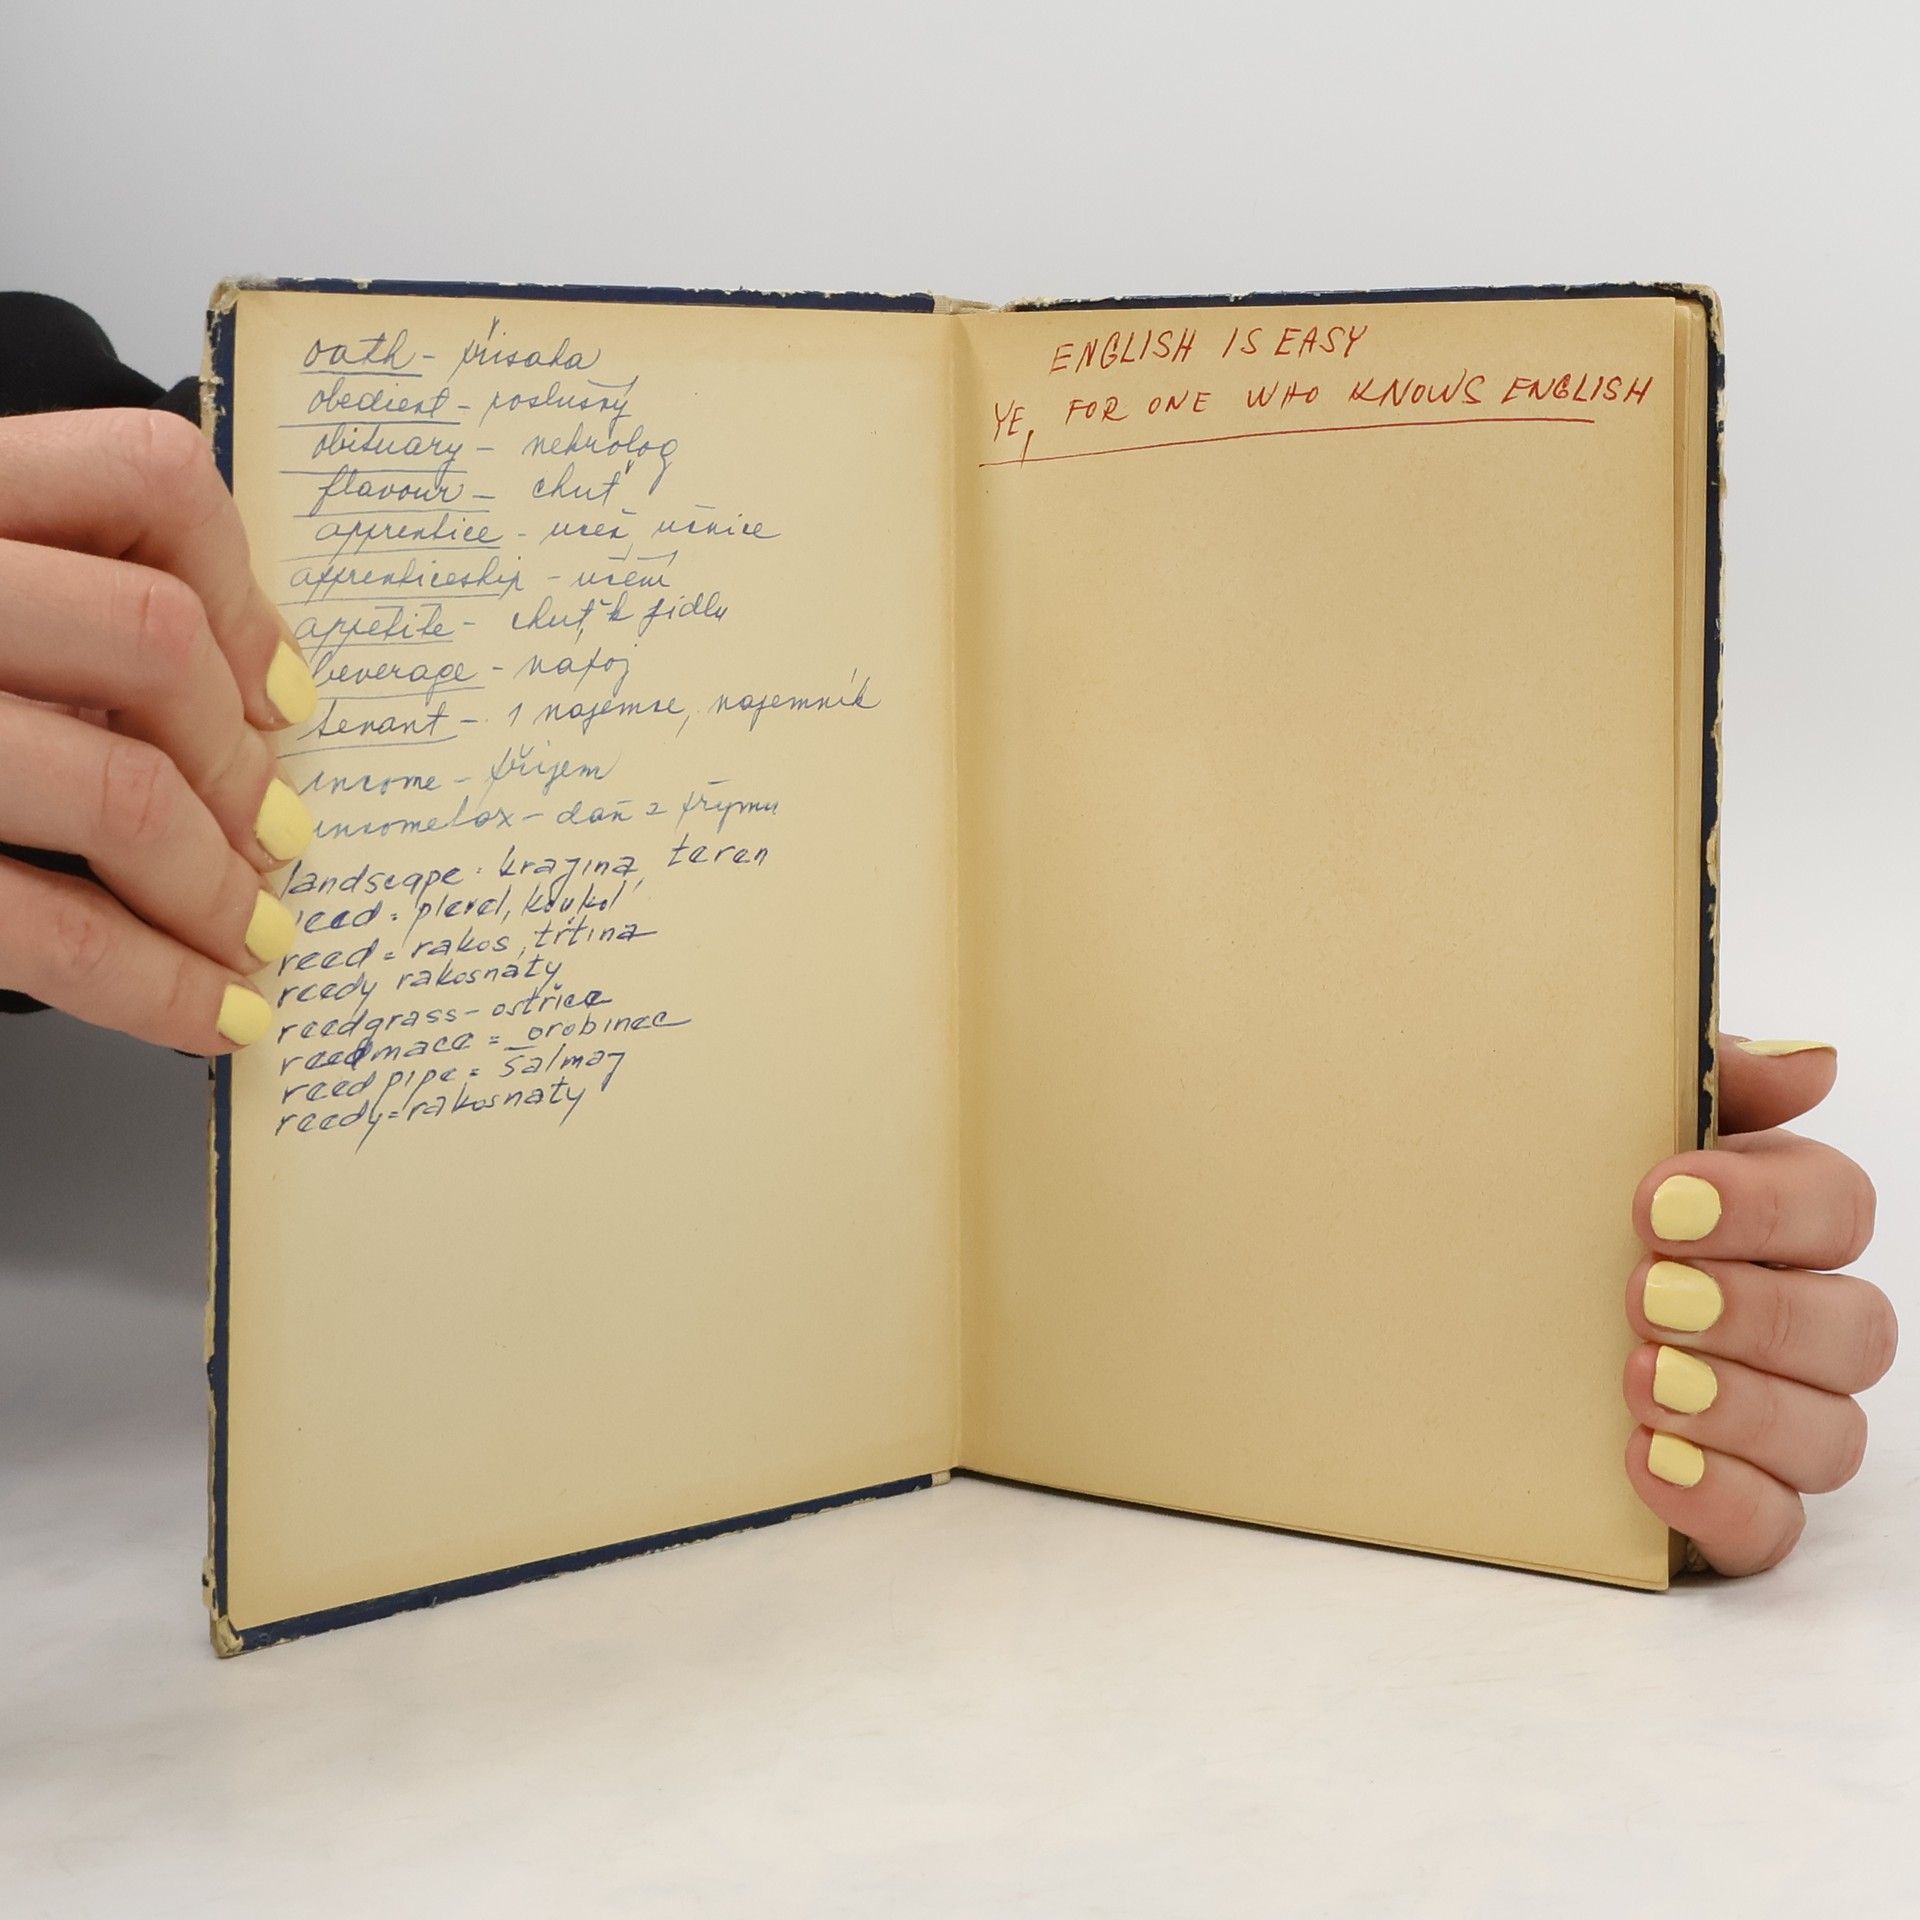 oath - přisaha
obedient - poslušný
obituary - nekrolog
flavour - chuť
apprentice - učeň, učnice
apprenticeship - učení
appetite - chuť k jidlu
beverage - napoj
tenant - 1 najemce, najemník
income - přijem
incometax - daň z přijmu
landscape = krajina, teren
eed = plevel, koukol
reed = rakos, třtina
reedy rakosnáty
reedgrass - ostřice
reedmace = orobinec
reed pipe = šalmaj
reedy = rakosnaty
ENGLISH IS EASY
YE, FOR ONE WHO KNOWS ENGLISH